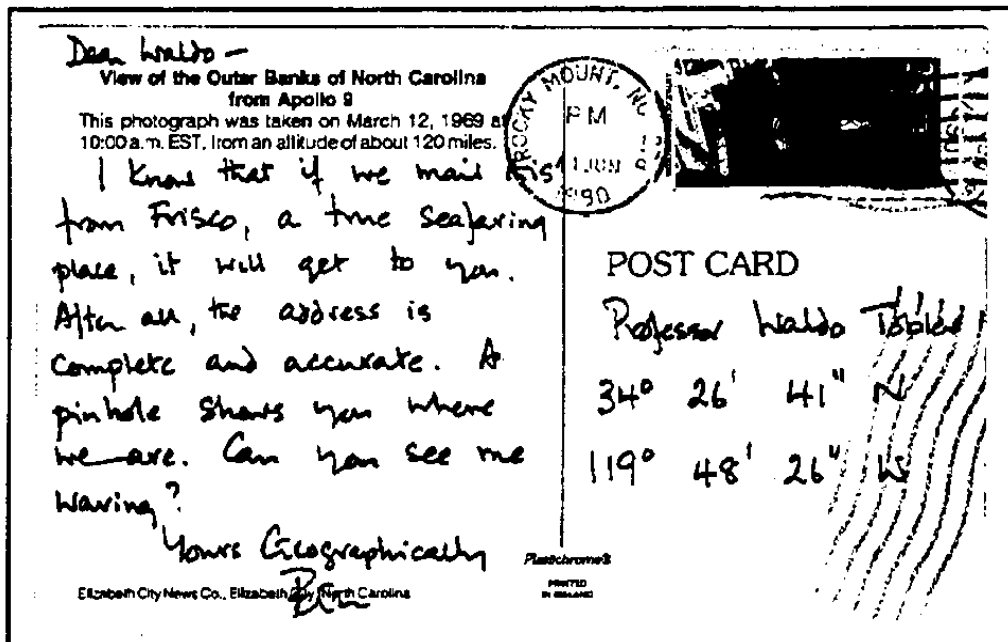 Dear Waldo –
View of the Outer Banks of North Carolina
from Apollo 9
This photograph was taken on March 12, 1969 at
10:00 a.m. EST, from an altitude of about 120 miles.
I know that if we mail this
from Frisco, a true seafaring
place, it will get to you.
After all, the address is
complete and accurate. A
pinhole shows you where
we are. Can you see me
waving?
Yours Geographically
Elizabeth City News Co., Elizabeth City, North Carolina
ROCKY MOUNT, NC
PM
JUN
1990
POST CARD
Professor Waldo Tobler
34° 26' 41" N
119° 48' 26" W
Plastichrome®
PRINTED
IN IRELAND